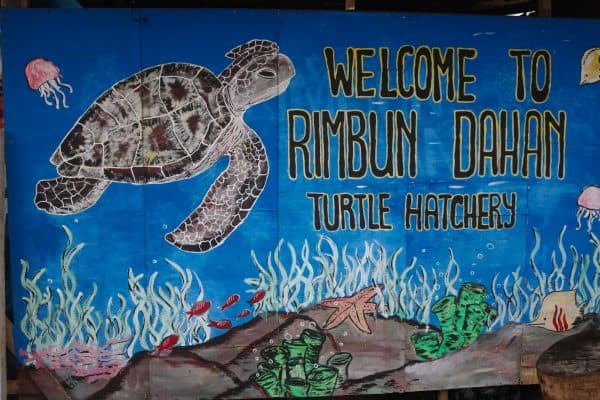 WELCOME TO
RIMBUN DAHAN
TURTLE HATCHERY